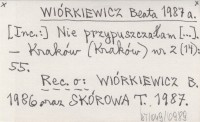 WIÓRKIEWICZ Beata 1987 a.
[Inc.:] Nie przypuszczałam [...].
– Kraków (Kraków) nr 2 (14):
55.
Rec. o: WIÓRKIEWICZ B.
1986 oraz SKÓROWA T. 1987.